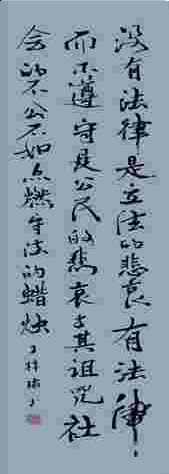 没有法律是立法的悲哀有法律
而不遵守是公民的悲哀与其诅咒社
会的不公不如点燃守法的蜡烛